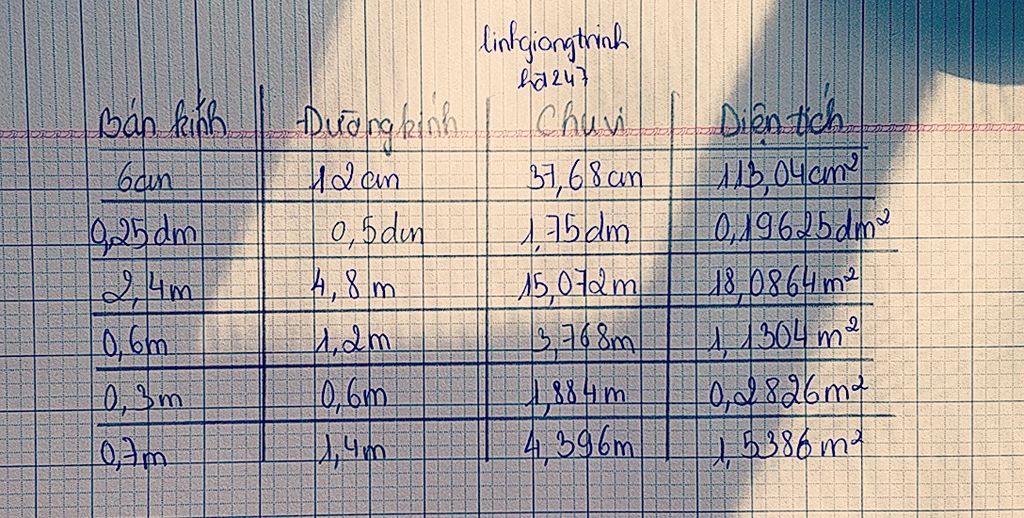 linhgiangtrinh
hd247
Bán kính Đường kính Chu vi Diện tích
6cm 12cm 37,68cm 113,04cm²
0,25dm 0,5dm 1,75dm 0,19625dm²
2,4m 4,8m 15,072m 18,0864m²
0,6m 1,2m 3,768m 1,1304m²
0,3m 0,6m 1,884m 0,2826m²
0,7m 1,4m 4,396m 1,5386m²